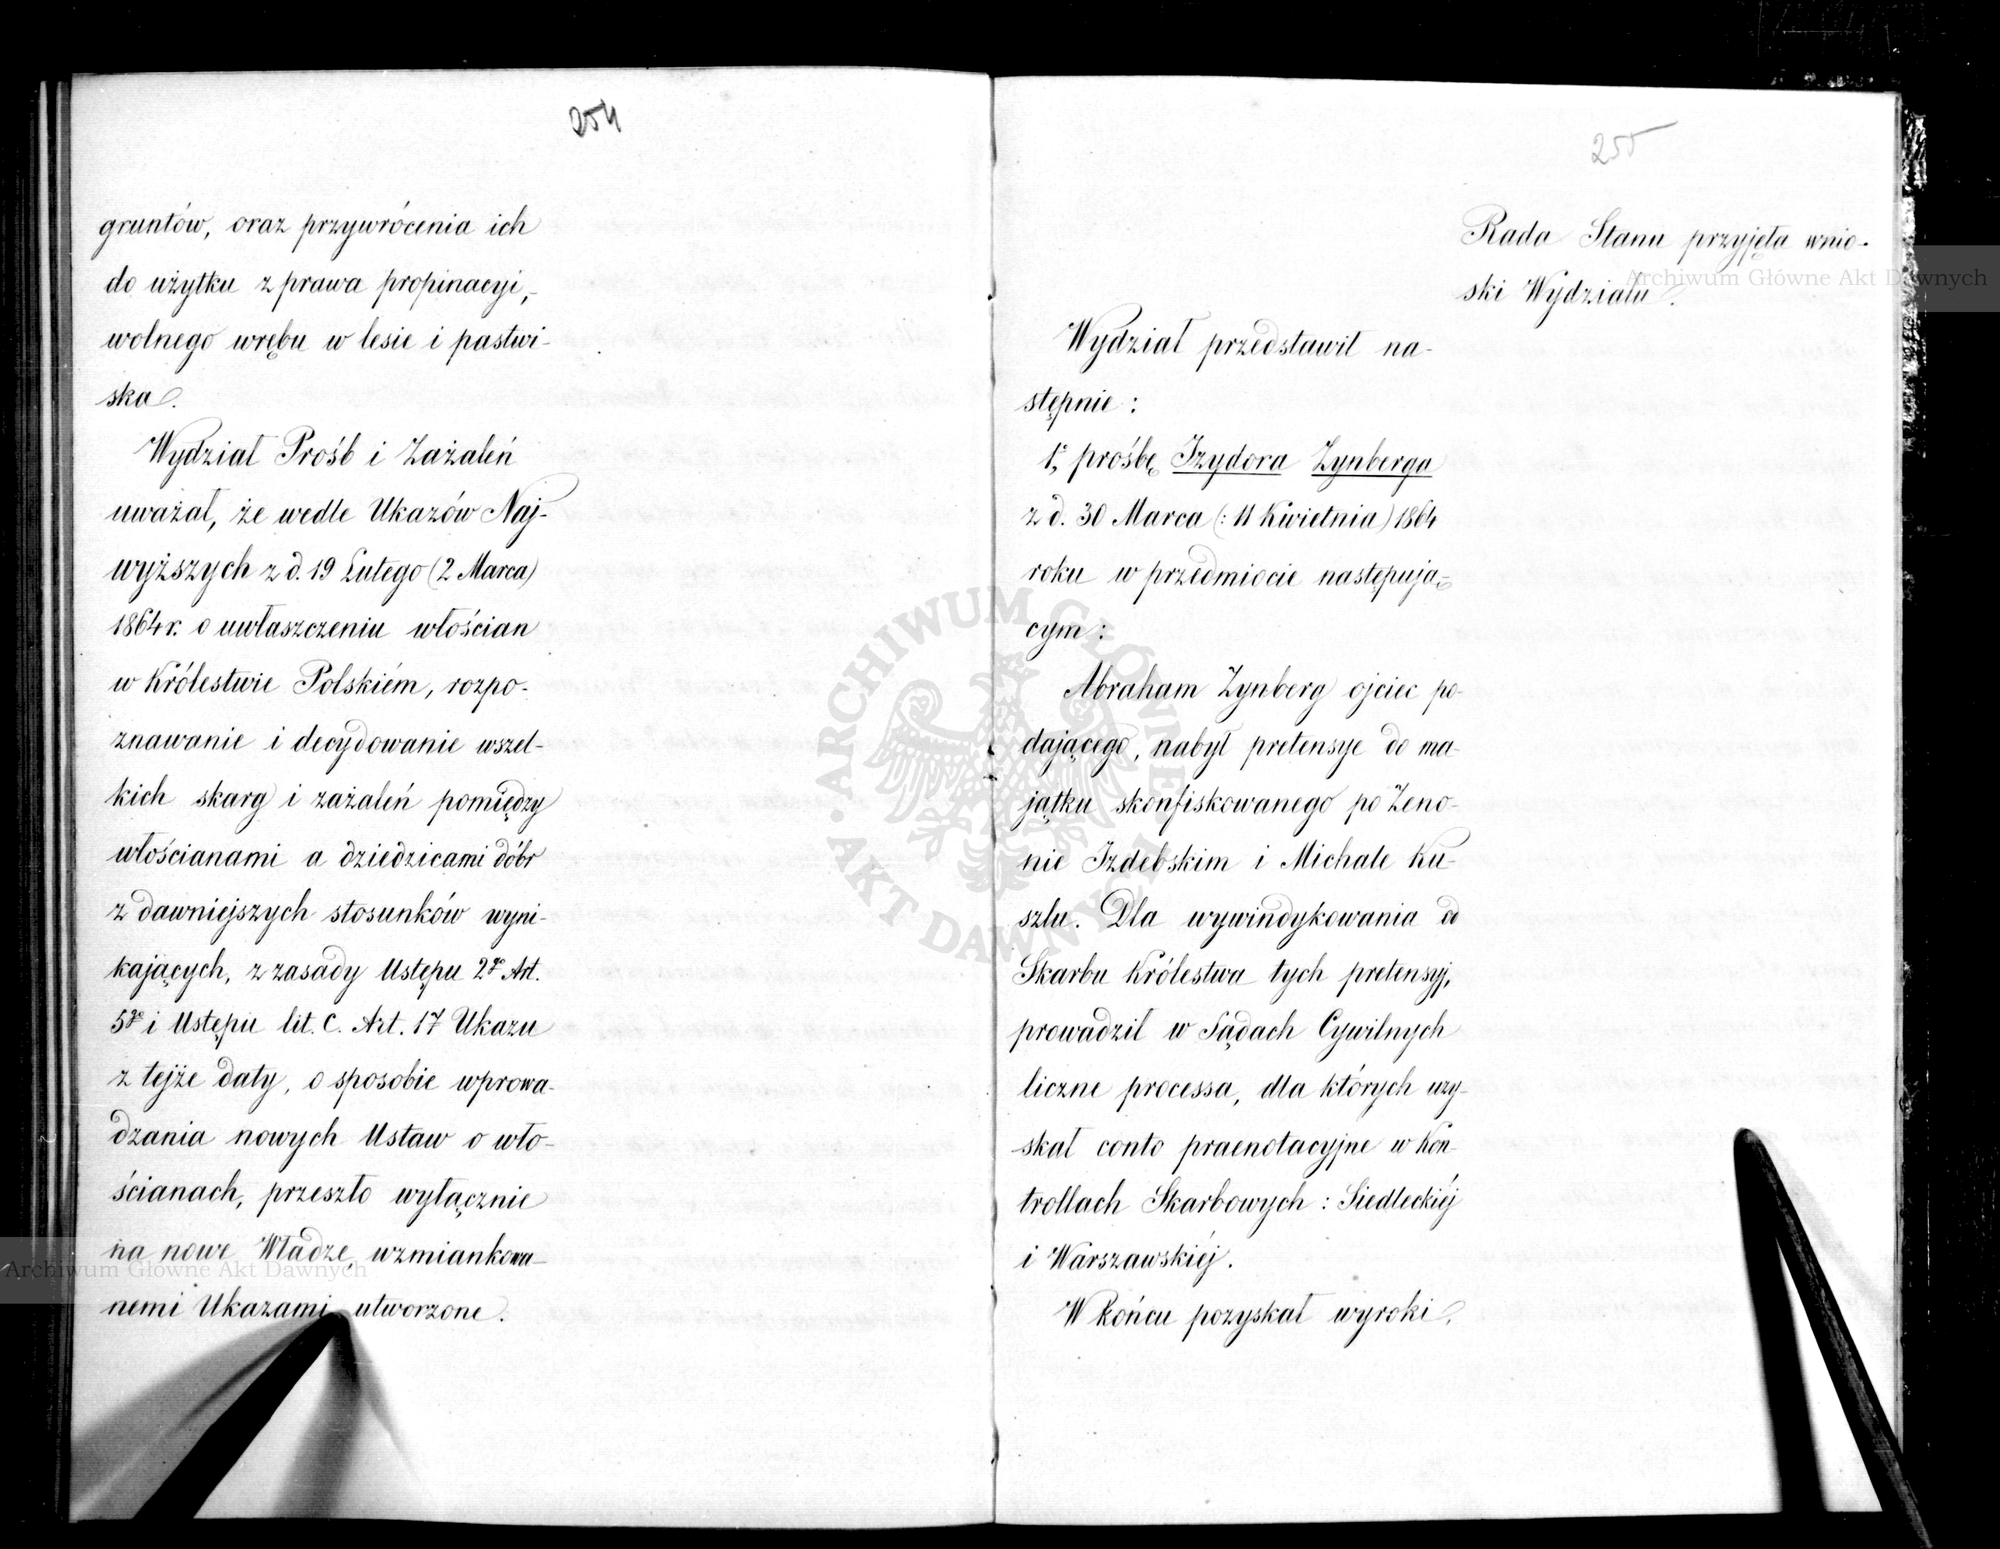 254
gruntów, oraz przywrócenia ich
do użytku z prawa propinacyi,
wolnego wrębu w lesie i pastwi-
ska.
Wydział Prośb i Zażaleń
uważał, że wedle Ukazów Naj-
wyższych z d. 19 Lutego (2 Marca)
1864 r. o uwłaszczeniu włościan
w Królestwie Polskiém, rozpo-
znawanie i decydowanie wszel-
kich skarg i zażaleń pomiędzy
włościanami a dziedzicami dóbr
z dawniejszych stosunków wyni-
kających, z zasady Ustępu 2go Art.
5go i Ustępu lit. C. Art. 17 Ukazu
z tejże daty, o sposobie wprowa-
dzania nowych Ustaw o wło-
ścianach, przeszło wyłącznie
na nowe Władze, wzmiankowa-
nemi Ukazami utworzone.
255
Rada Stanu przyjęła wnio-
ski Wydziału.
Wydział przedstawił na-
stępnie:
1e, prośbę Izydora Zynberga
z d. 30 Marca (: 11 Kwietnia) 1864
roku w przedmiocie następują-
cym:
Abraham Zynberg ojciec po-
dającego, nabył pretensye do ma-
jątku skonfiskowanego po Zeno-
nie Izdebskim i Michale Ku-
szlu. Dla wywindykowania od
Skarbu Królestwa tych pretensyj,
prowadził w Sądach Cywilnych
liczne processa, dla których uzy-
skał conto praenotacyjne w Kon-
trollach Skarbowych: Siedleckiéj
i Warszawskiéj.
W końcu pozyskał wyroki,
Archiwum Główne Akt Dawnych
ARCHIWUM GŁÓWNE
AKT DAWNYCH
Archiwum Główne Akt Dawnych